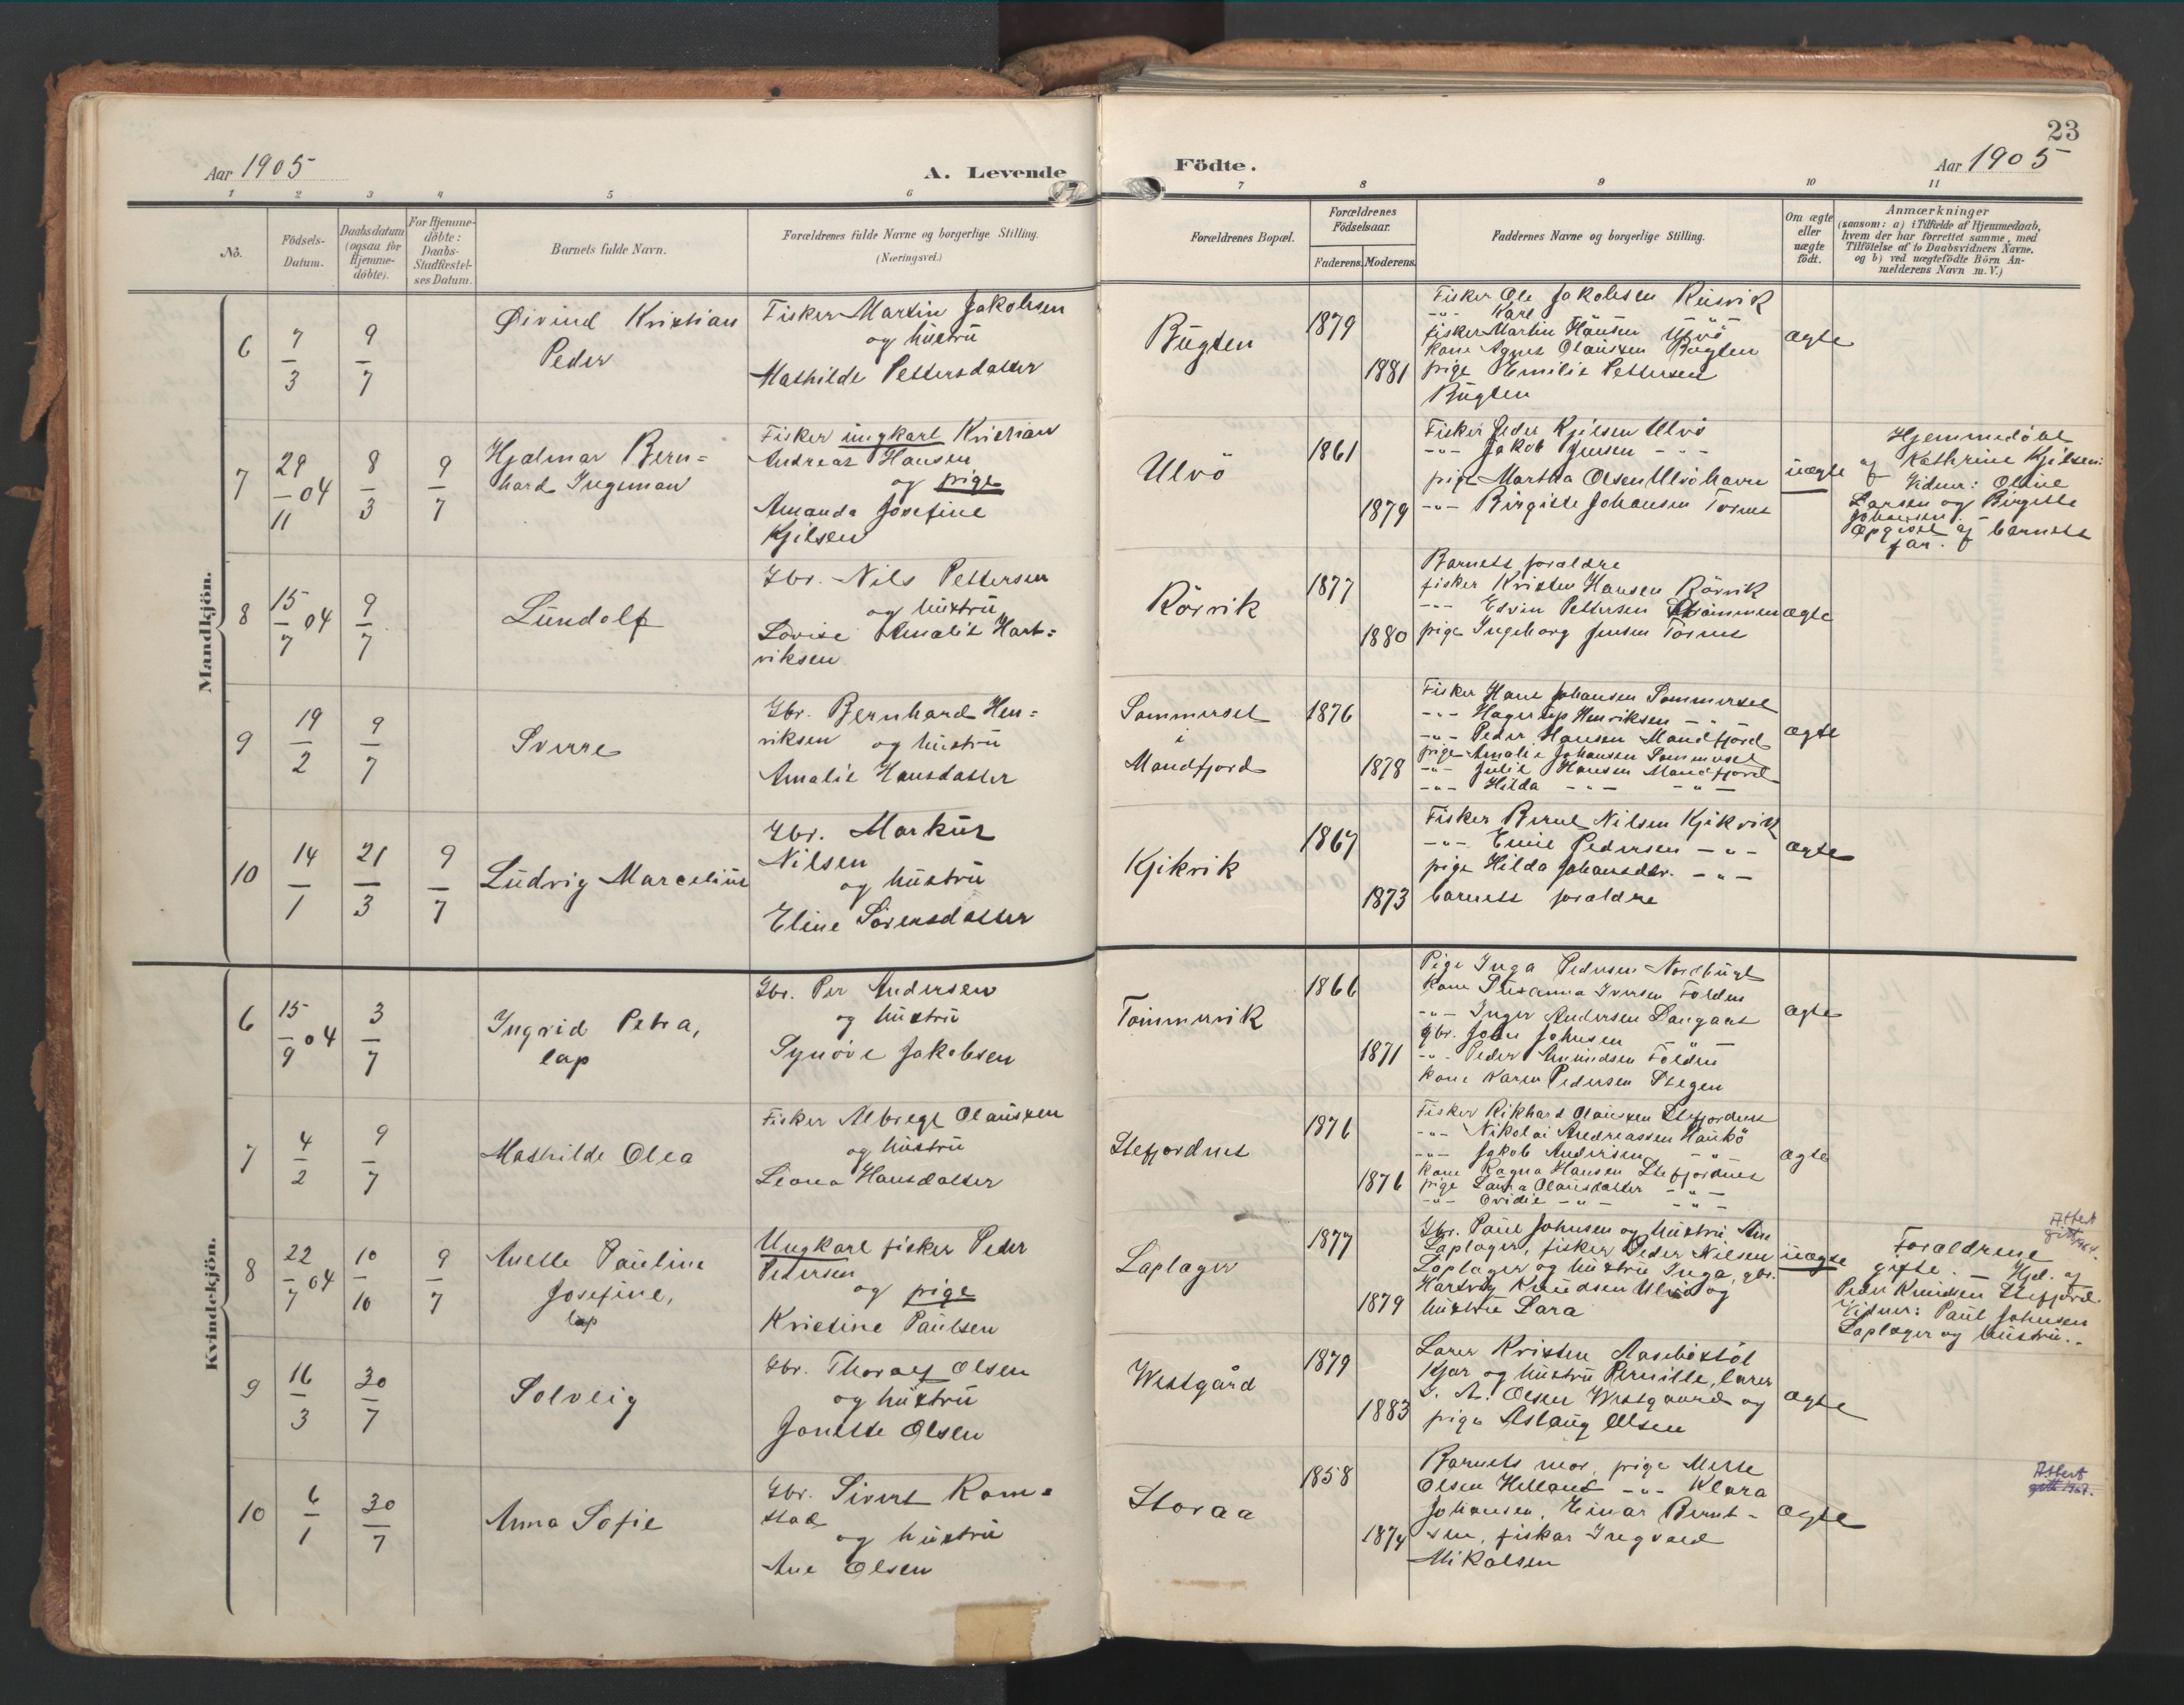 23
Aar 1905
A. Levende
Födte.
Aar 1905
1 2 3 4 5 6 7 8 9 10 11
No.
Födsels-
Datum.
Daabsdatum
(ogsaa for
Hjemme-
döbte).
For Hjemme-
döbte:
Daabs-
Stadfæstel-
ses Datum.
Barnets fulde Navn.
Forældrenes fulde Navne og borgerlige Stilling.
(Næringsvei.)
Forældrenes Bopæl.
Forældrenes
Födselsaar.
Faderens. Moderens.
Faddernes Navne og borgerlige Stilling.
Om ægte
eller
uægte
födt.
Anmærkninger
(saasom: a) i Tilfælde af Hjemmedaab,
hvem der har forrettet samme, med
Tilföielse af to Daabsvidners Navne,
og b) ved uægtefödte Börn An-
melderens Navn m. V.)
Mandkjön.
6
7
3
9
7
Øivind Kristian
Peder
Fisker Martin Jakobsen
og hüstrü
Mathilde Pettersdatter
Bügten
1879
1881
Fisker Ole Jakobsen Rüsvik
-"- Karl -"-
fisker Martin Hansen Ulvö
kone Agnes Olaüsen Bügten
pige Emilie Pettersen
Bügten
ægte
7
29
04
11
8
3
9
7
Hjalmar Bern=
hard Ingeman
Fisker üngkarl Kristian
Andreas Hansen
og pige
Amanda Josefine
Kjilsen
Ulvö
1861
1879
Fisker Peder Kjilsen Ulvö
-"- Jakob Jensen -"-
pige Martha Olsen Ulvöhavn
-"- Birgitte Johansen Tornes
üægte
Hjemmedöbt
af Kathrine Kjilsen.
Vidner: Oline
Larsen og Birgitte
Johansen.
Opgivet af barnets
far.
8
15
04
7
9
7
Lündolf
Gbr. Nils Pettersen
og hüstrü
Lovise Amalie Hart=
viksen
Rörvik
1877
1880
Barnets forældre
fisker Kristen Hansen Rörvik
-"- Edvin Pettersen Strömmen
pige Ingeborg Jensen Tornes
ægte
9
19
2
9
7
Sverre
Gbr. Bernhard Hen=
riksen og hüstrü
Amalie Hansdatter
Sommerset
i
Mandfjord
1876
1878
Fisker Hans Johansen Sommerset
-"- Hagerup Henriksen -"-
-"- Peder Hansen Mandfjord
pige Amalie Johansen Sommerset
-"- Julie Hansen Mandfjord
-"- Hilda -"- -"-
ægte
10
14
1
21
3
9
7
Lüdvig Marcelius
Gbr. Marküs
Nilsen
og hüstrü
Eline Sörensdatter
Kjikvik
1867
1873
Fisker Bernt Nilsen Kjikvik
-"- Emil Pedersen -"-
pige Hilda Johansdtr. -"-
barnets forældre
ægte
Kvindekjön.
6
15
04
9
3
7
Ingrid Petra,
lap
Gbr. Per Andersen
og hüstrü
Synöve Jakobsen
Tömmervik
1866
1871
Pige Inga Pedersen Nordbügt
kone Süsanna Iversen
-"- Inger Andersen
gbr. John Johnsen -"-
-"- Peder Amündsen
kone Karen Pedersen Stegen
ægte
7
4
2
9
7
Mathilde Olea
Fisker Albregt Olaüsen
og hüstrü
Leona Hansdatter
Stefjordnes
1876
1876
Fisker Rikhard Olaüsen Stefjordnes
-"- Nikolai Andreassen Haukö
-"- Jakob Andersen -"-
kone Ragna Hansen Stefjordnes
pige Laüra Olaüsdatter -"-
-"- Ovidie -"- -"-
ægte
8
22
04
7
10
10
9
7
Anette Paüline
Josefine,
lap
Ungkarl fisker Peder
Pedersen
og pige
Kristine Paülsen
Laplager
1877
1879
Gbr. Paül Johnsen og hüstrü Ane
Laplager, fisker Peder Nilsen
Laplager og hüstrü Inga, gbr.
Hartvig Knüdsen Ulvö og
hüstrü Sara
üægte
Attest
1964.
Forældrene
gifte. — Hjd. af
Peder Knüdsen Stefjord.
Vidner: Paül Johnsen
Laplager og hüstrü.
9
16
3
30
7
Solveig
Gbr. Thoralf Olsen
og hüstrü
Jonette Olsen
Westgård
1879
1883
Lærer Kristen Aaseböstöl
Kjær og hüstrü Pernille, lærer
A. Olsen Westgaard og
pige Aslaüg Olsen
ægte
10
6
1
30
7
Anna Sofie
Gbr. Sivert Rom=
stad
og hüstrü
Ane Olsen
Storaa
1858
1874
Barnets mor, pige Mette
Olsen Helland -"- Klara
Johansen, Einar Bernt-
sen, fisker Ingvald
Mikalsen
ægte
Attest
1967.